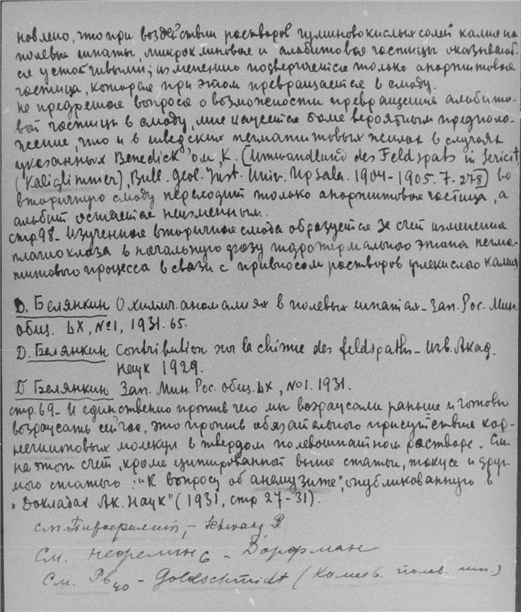 новлено, что при воздействии растворов гуминовокислых солей калия на
полевые шпаты, микроклиновые и альбитовые частицы оказывают-
ся устойчивыми; изменению подвергается только анортитовая
частица, которая при этом превращается в слюду.
Не предрешая вопроса о возможности превращения альбито-
вой частицы в слюду, мне кажется более вероятным предполо-
жение, что и в шведских пегматитовых жилах в случаях
указанных Benedick'ом, К. (Umwandlung des Feldspats in Sericit
(Kaliglimmer), Bull. geol. Inst. Univ. Upsala. 1904-1905. 7. 278) во
вторичную слюду переходит только анортитовая частица, а
альбит остается неизменным.
стр 98 - Изученная вторичная слюда образуется за счет изменения
плагиоклаза в начальную фазу гидротермального этапа пегма-
титового процесса в связи с привносом растворов углекислого калия
Д. Белянкин О химич. аномалиях в полевых шпатах - Зап. Рос. Мин.
общ. LX, №1, 1931. 65.
Д. Белянкин Contribution sur la chimie des feldspaths - Изв. Акад.
Наук 1929.
Д Белянкин Зап. Мин. Рос. общ. LX, №1. 1931.
стр. 69 - И единственно против чего мы возражали раньше и готовы
возражать сейчас, это против обязательного присутствия кар-
негиитовых молекул в твердом полевошпатном растворе. См.
на этот счет, кроме цитированной выше статьи, также и дру-
гую статью: "К вопросу об анемузите", опубликованную в
"Докладах Ак. Наук" (1931, стр 27-31).
см. Пирофиллит, - Schwarz R
См. нефелин 6 - Дорфман
См. Rb 40 - Goldschmidt (Калиев. полев. шп.)